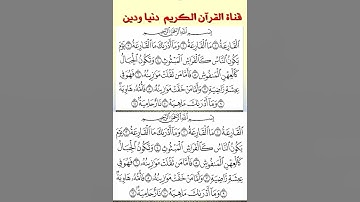 قناة القرآن الكريم دنيا ودين
بِسْمِ اللَّهِ الرَّحْمَٰنِ الرَّحِيمِ
الْقَارِعَةُ ۝١ مَا الْقَارِعَةُ ۝٢ وَمَا أَدْرَاكَ مَا الْقَارِعَةُ ۝٣ يَوْمَ
يَكُونُ النَّاسُ كَالْفَرَاشِ الْمَبْثُوثِ ۝٤ وَتَكُونُ الْجِبَالُ
كَالْعِهْنِ الْمَنفُوشِ ۝٥ فَأَمَّا مَن ثَقُلَتْ مَوَازِينُهُ ۝٦ فَهُوَ فِي
عِيشَةٍ رَّاضِيَةٍ ۝٧ وَأَمَّا مَنْ خَفَّتْ مَوَازِينُهُ ۝٨ فَأُمُّهُ هَاوِيَةٌ
۝٩ وَمَا أَدْرَاكَ مَا هِيَهْ ۝١٠ نَارٌ حَامِيَةٌ ۝١١
بِسْمِ اللَّهِ الرَّحْمَٰنِ الرَّحِيمِ
الْقَارِعَةُ ۝١ مَا الْقَارِعَةُ ۝٢ وَمَا أَدْرَاكَ مَا الْقَارِعَةُ ۝٣ يَوْمَ
يَكُونُ النَّاسُ كَالْفَرَاشِ الْمَبْثُوثِ ۝٤ وَتَكُونُ الْجِبَالُ
كَالْعِهْنِ الْمَنفُوشِ ۝٥ فَأَمَّا مَن ثَقُلَتْ مَوَازِينُهُ ۝٦ فَهُوَ فِي
عِيشَةٍ رَّاضِيَةٍ ۝٧ وَأَمَّا مَنْ خَفَّتْ مَوَازِينُهُ ۝٨ فَأُمُّهُ هَاوِيَةٌ
۝٩ وَمَا أَدْرَاكَ مَا هِيَهْ ۝١٠ نَارٌ حَامِيَةٌ ۝١١